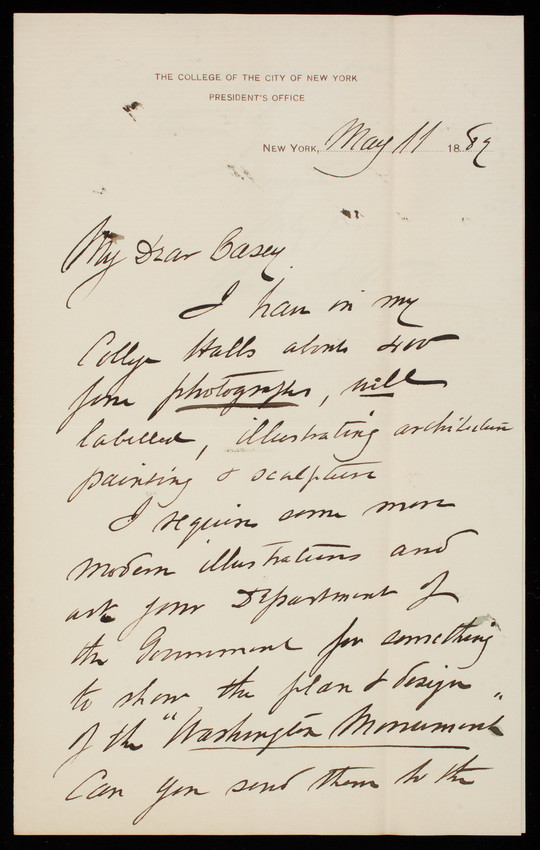 THE COLLEGE OF THE CITY OF NEW YORK
PRESIDENT'S OFFICE
NEW YORK, May 11 1889
My Dear Casey
I have in my
College Halls about 400
fine photographs, well
labelled, illustrating architecture
painting & sculpture
I require some more
modern illustrations and
ask your Department of
the Government for something
to show the plan & design
of the "Washington Monument"
Can you send them to the